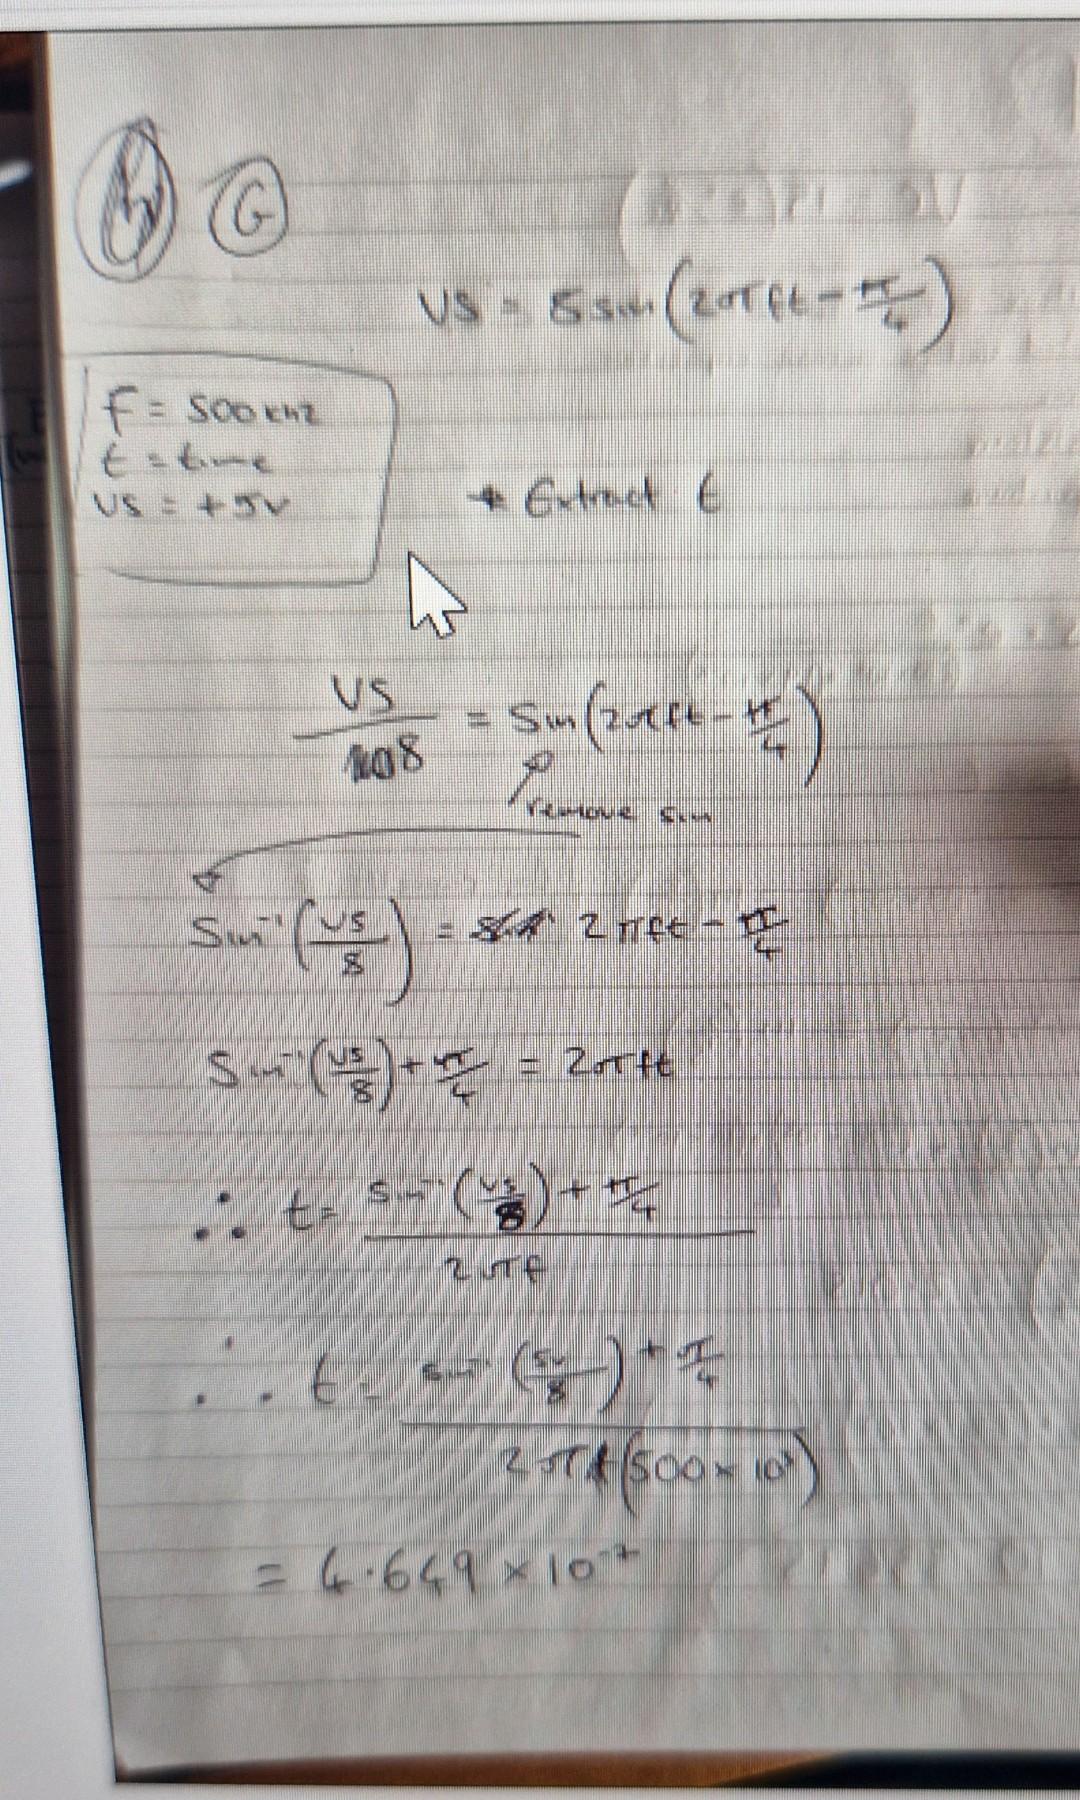 G
VS = 8 sin(2πft - π/4)
f = 500khz
t = time
VS = +5v
* Extract t
VS/8 = Sin(2πft - π/4)
remove sin
Sin⁻¹(VS/8) = 2πft - π/4
Sin⁻¹(VS/8) + π/4 = 2πft
∴ t = sin⁻¹(VS/8) + π/4 / 2πf
∴ t = sin⁻¹(5v/8) + π/4 / 2π(500 × 10³)
= 4.649 × 10⁻⁷